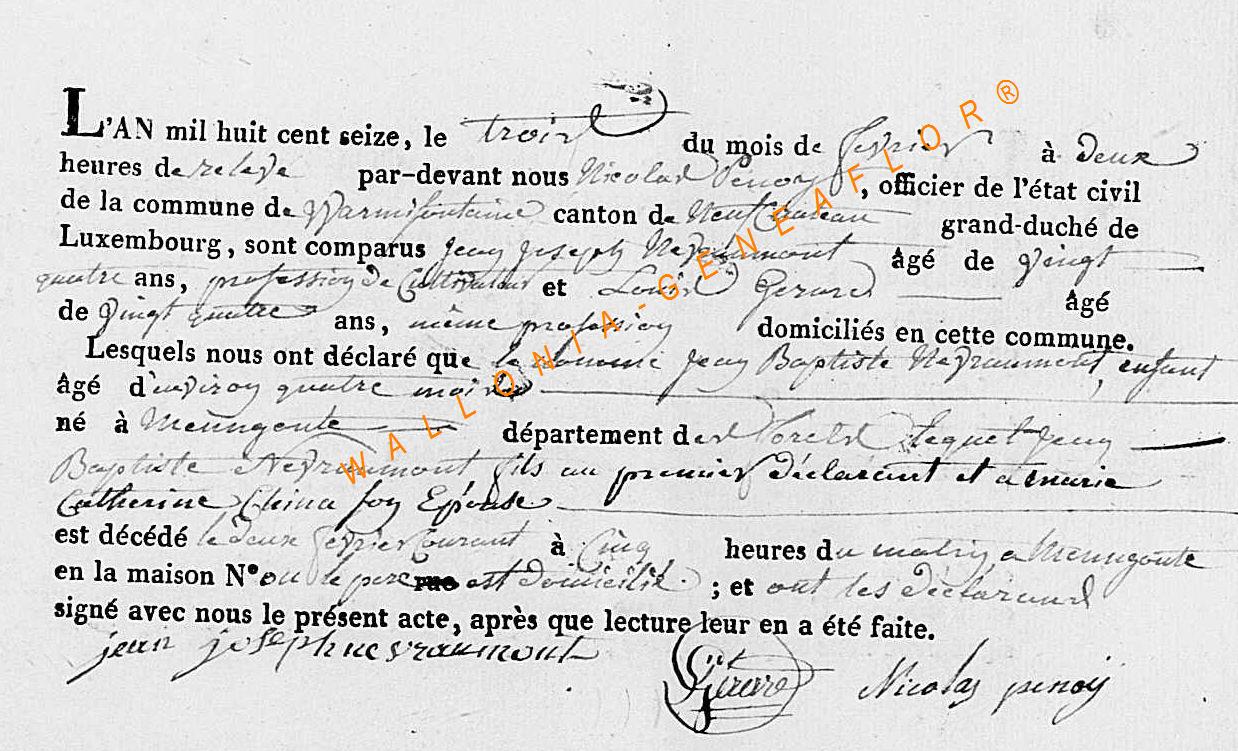 L'AN mil huit cent seize, le trois du mois de fevrier à deux
heures de releve par-devant nous Nicolas Penoy, officier de l'état civil
de la commune de Warmifontaine canton de Neufchateau grand-duché de
Luxembourg, sont comparus Jean Joseph Nevraumont âgé de vingt
quatre ans, profession de Cultivateur et Louis Gerard âgé
de vingt quatre ans, même profession domiciliés en cette commune.
Lesquels nous ont déclaré que le nommé Jean Baptiste Nevraumont, enfant
âgé d'environ quatre mois
né à Menugoute département des Forets lequel Jean
Baptiste Nevraumont fils au premier déclarant et a marie
Catherine China son Epouse
est décédé le deux fevrier Courant à Cinq heures du matin, a Menugoute
en la maison N° ou le pere rue est domicilié ; et ont les déclarans
signé avec nous le présent acte, après que lecture leur en a été faite.
jean joseph nevraumont Gerard Nicolas penoy
WALLONIA-GENEAFLOR®